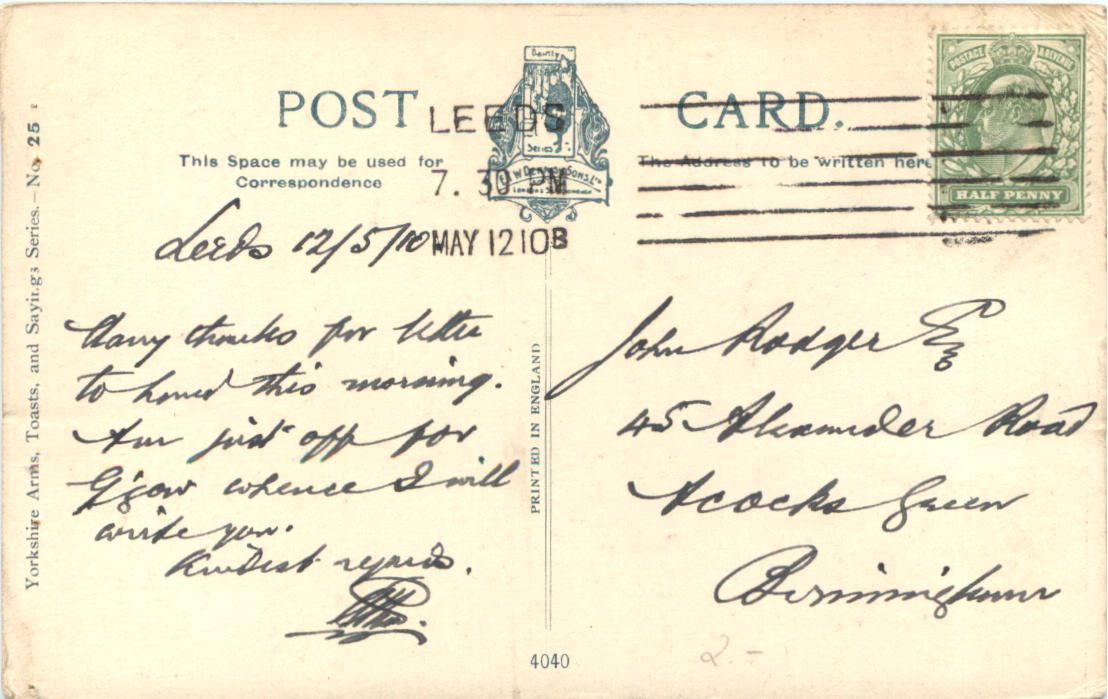 POST CARD.
Dainty
Series
W. Dennis & Sons, Ltd
London &
LEEDS
7. 30 PM
MAY 12 10 B
POSTAGE REVENUE
HALF PENNY
This Space may be used for
Correspondence
The Address to be written here
Leeds 12/5/10
Many thanks for letter
to hand this morning.
Am just off for
G'gow whence I will
write you.
Kindest regards.
John Rodger Esq
45 Alexander Road
Acocks Green
Birmingham
Yorkshire Arms, Toasts, and Sayings Series. – No. 25
PRINTED IN ENGLAND
4040
2.-